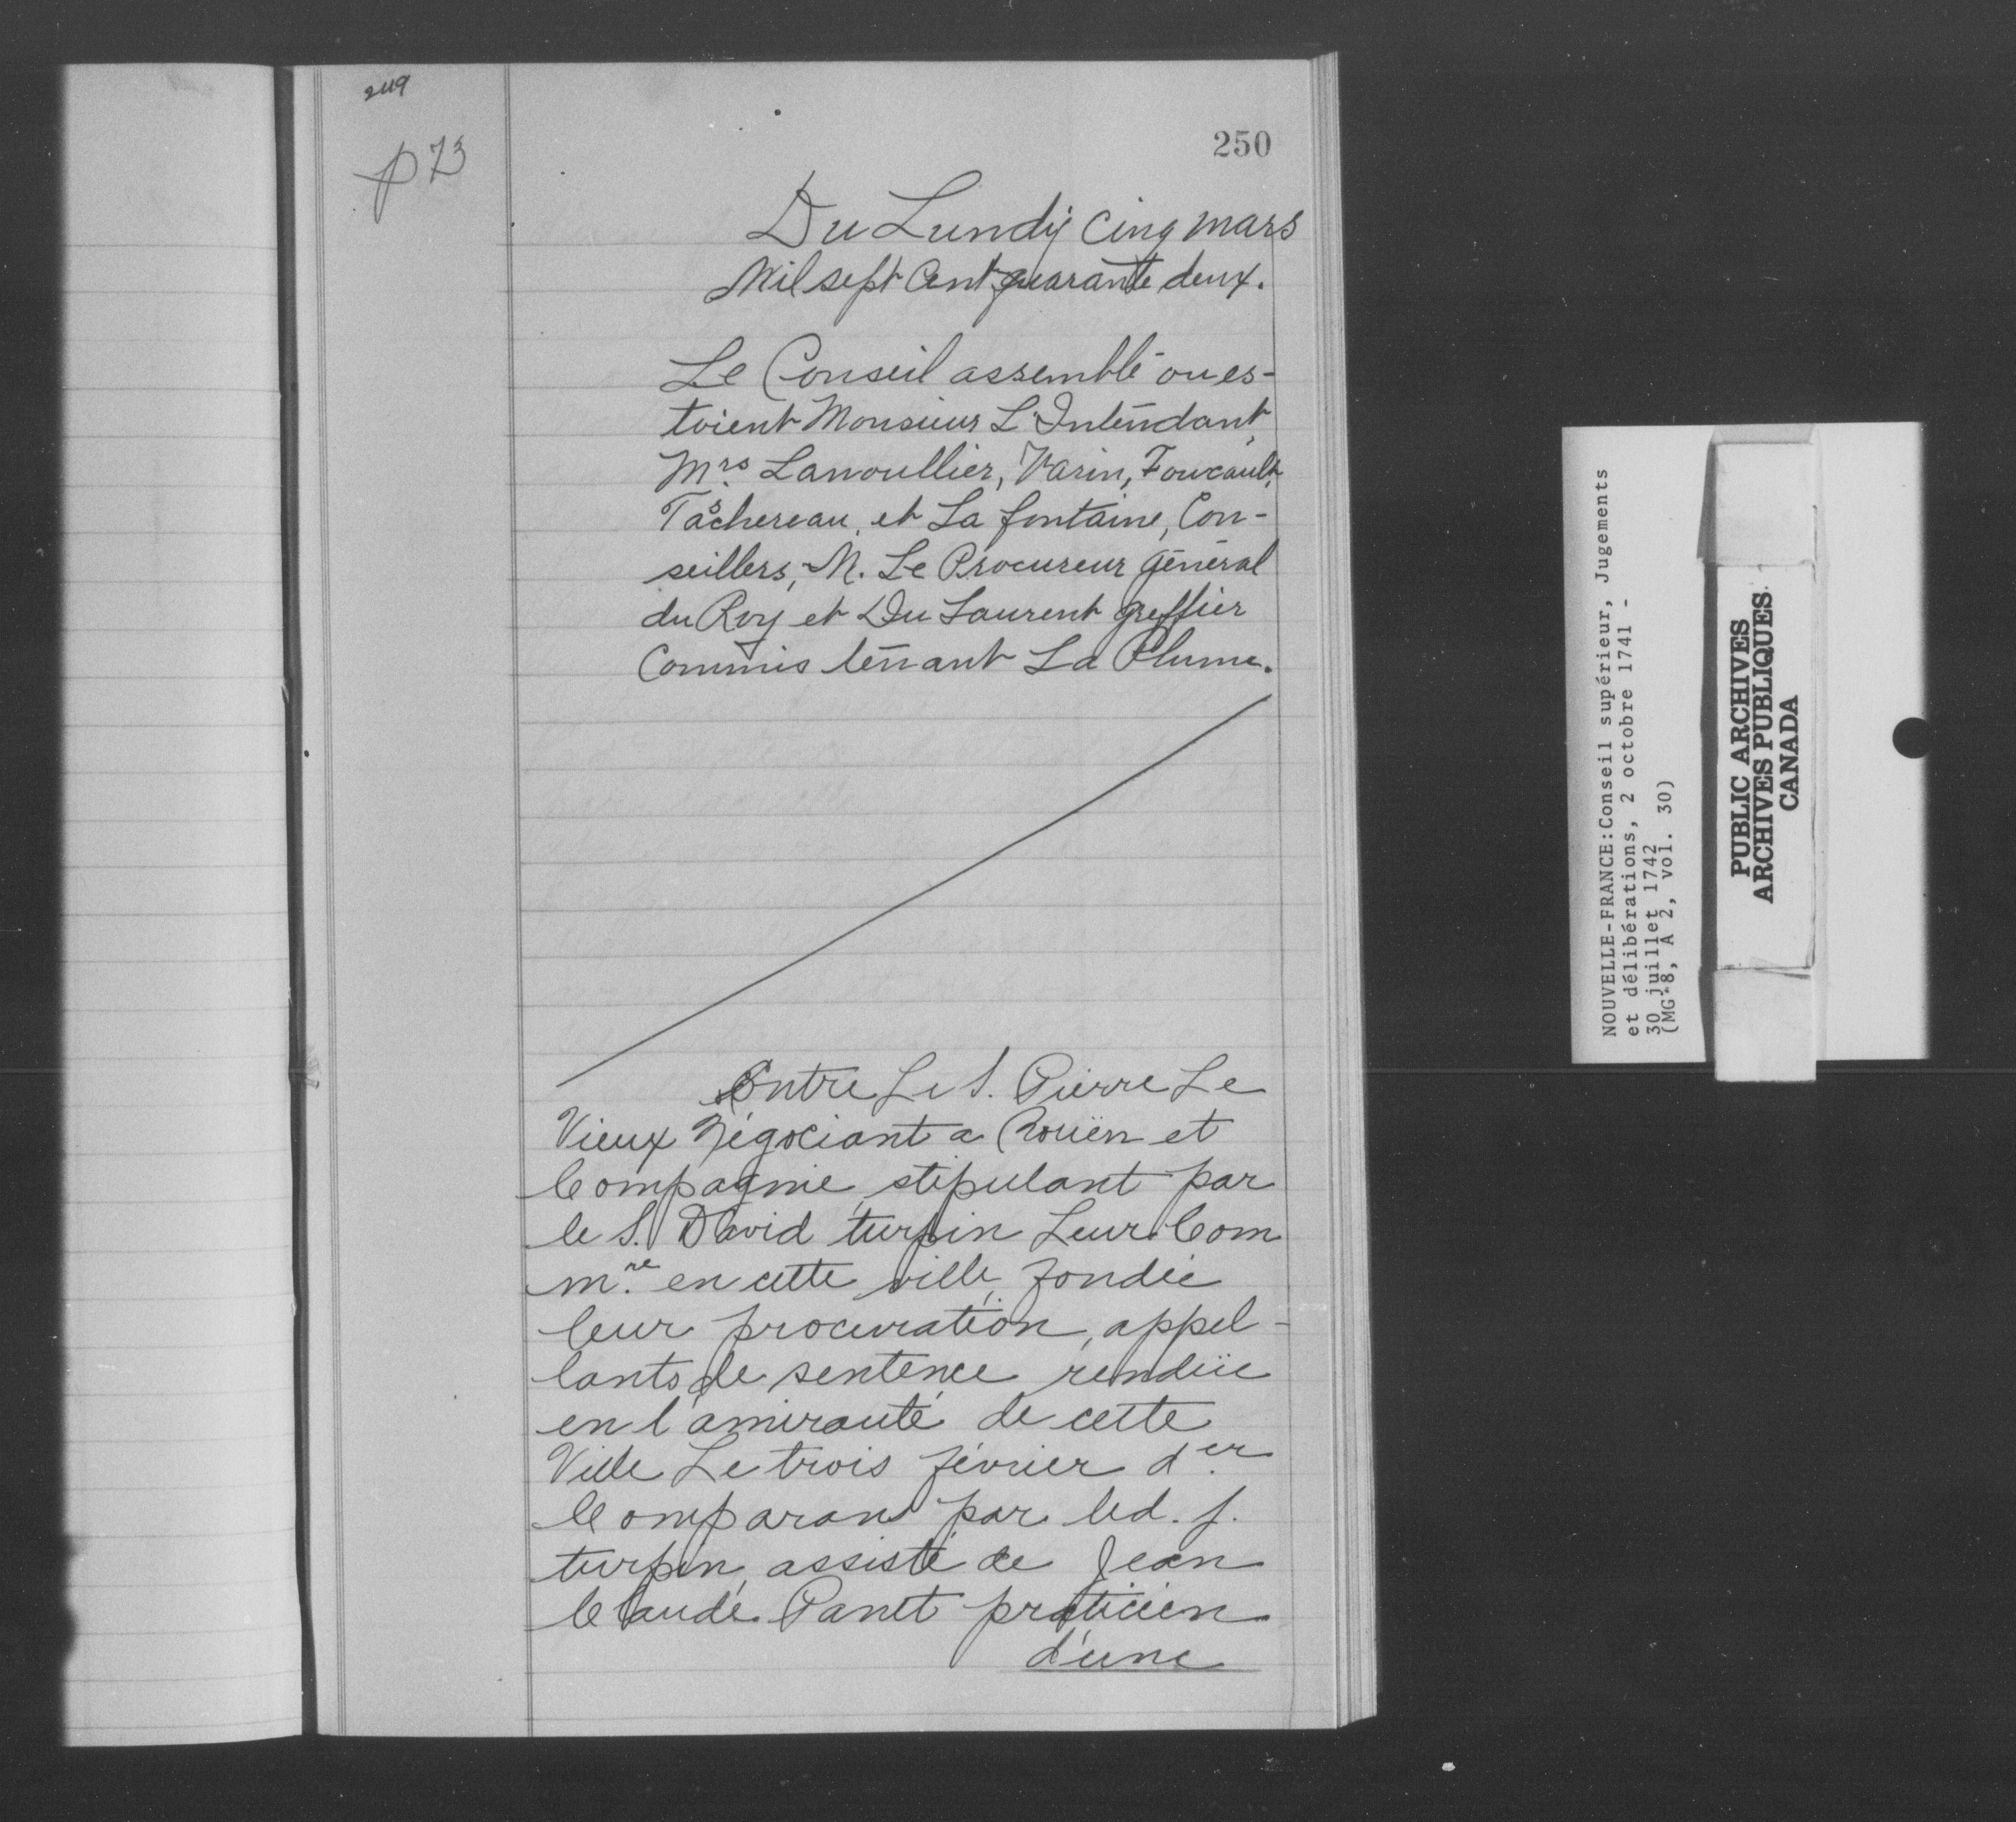 249
p 73
250
Du Lundy cinq mars
Mil sept Cent quarante deux.
Le Conseil assemblé ou es-
toient Monsieur L'Intendant,
Mrs. Lanoullier, Varin, Foucault,
Taschereau, et La fontaine, Con-
seillers, M. Le Procureur général
du Roy et Du Laurent greffier
Commis tenant La Plume.
Entre Le S. Pierre Le
Vieux Négociant a Rouën et
Compagnie, stipulant par
le S. David turpin Leur Com
m.re en cette ville, fondée
leur procuration, appel-
lants de sentence rendüe
en l'amirauté de cette
Ville Le trois février d.er
Comparans par led. s.
turpin, assisté de Jean
Claude Panet praticien
d'une
NOUVELLE-FRANCE:Conseil supérieur, Jugements
et délibérations, 2 octobre 1741 -
30 juillet 1742
(MG 8, A 2, vol. 30)
PUBLIC ARCHIVES
ARCHIVES PUBLIQUES
CANADA